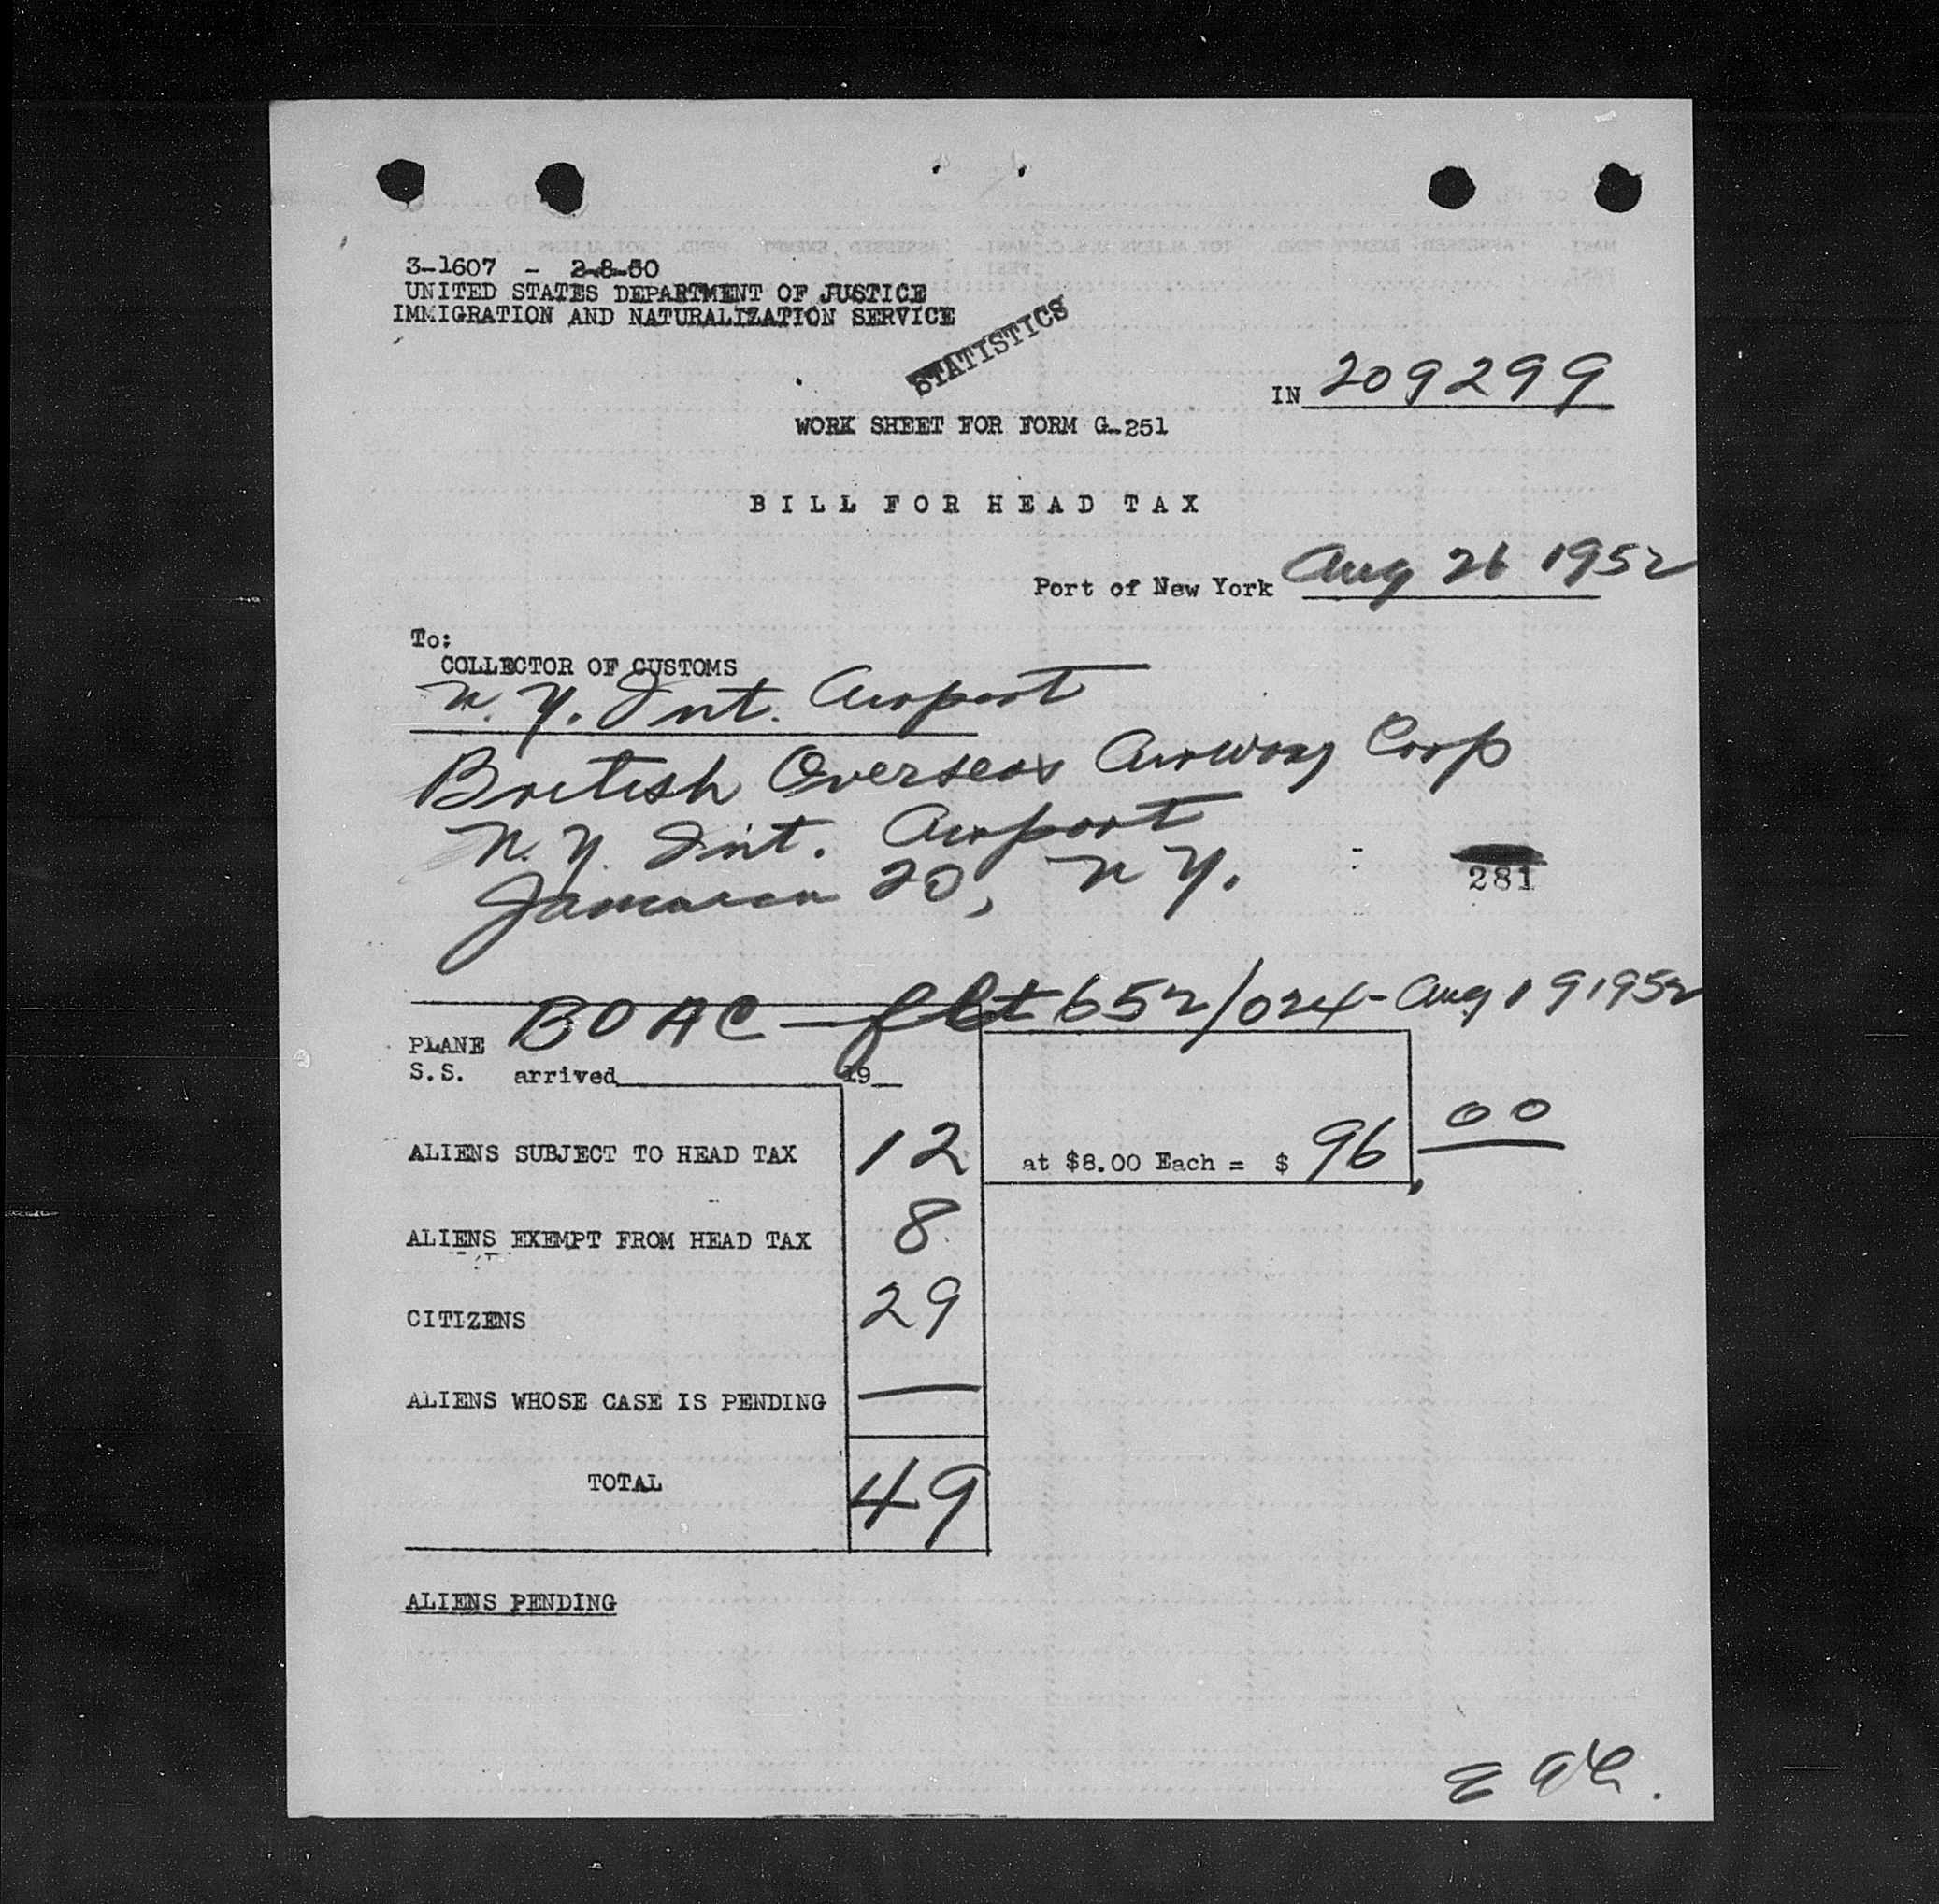 3-1607 - 2-8-50
UNITED STATES DEPARTMENT OF JUSTICE
IMMIGRATION AND NATURALIZATION SERVICE
STATISTICS
IN 209299
WORK SHEET FOR FORM G-251
BILL FOR HEAD TAX
Port of New York Aug 26 1952
To:
COLLECTOR OF CUSTOMS
N.Y. Int. Airport
British Overseas Airways Corp
N.Y. Int. Airport
Jamaica 20, N Y.
281
BOAC - flt 652/024 - Aug 19 1952
PLANE
S.S. arrived 19
ALIENS SUBJECT TO HEAD TAX 12 at $8.00 Each = $ 96.00
ALIENS EXEMPT FROM HEAD TAX 8
CITIZENS 29
ALIENS WHOSE CASE IS PENDING —
TOTAL 49
ALIENS PENDING